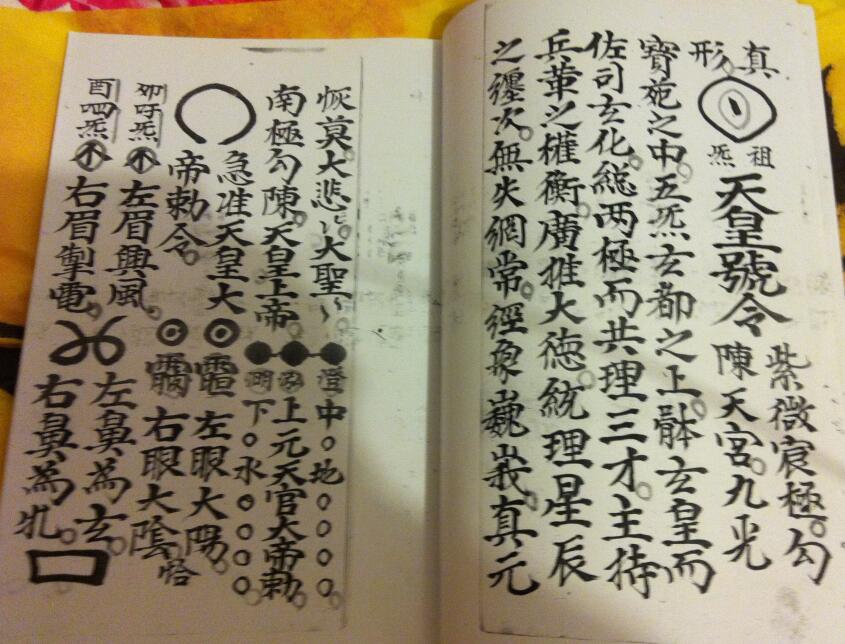 真
形
祖
炁
天皇號令
紫微宸極。勾
陳天宮。九光
寶苑之中。五炁玄都之上。體玄皇而
佐司玄化。總两極而共理三才。主持
兵革之權衡。廣推大德。統理星辰
之纏次。無失網常。經象巍峩。真元
恢莫。大悲〻大聖〻
南極勾陳。天皇上帝
急准天皇大
帝勅令。
卯吁炁
左眉興風。
酉呬炁
右眉掣電。
澄
中○地○○○○
泓
上元天官大帝勅
下○水○○○○
左眼大陽。
右眼大陰。
左鼻為玄。
右鼻為牝。